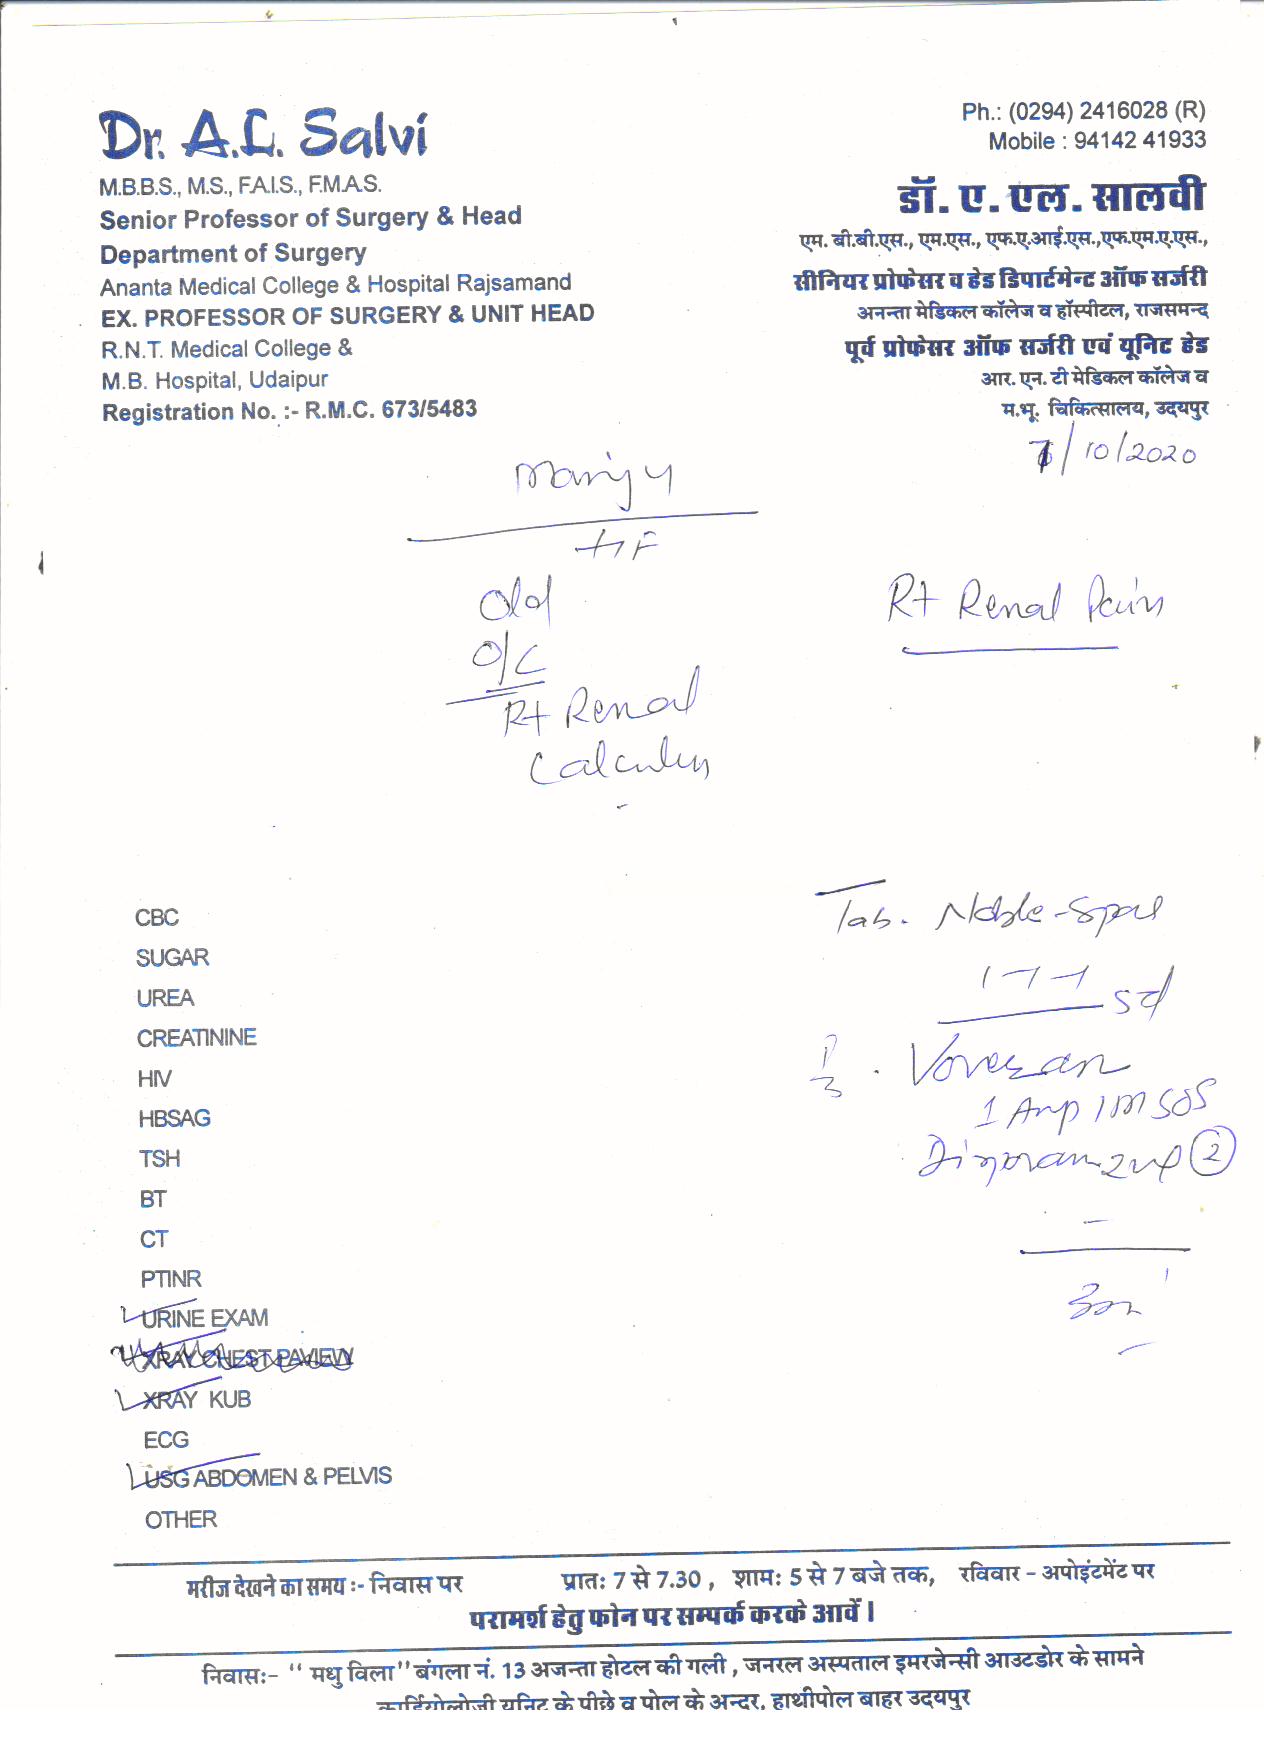 Dr. A.L. Salvi
M.B.B.S., M.S., F.A.I.S., F.M.A.S.
Senior Professor of Surgery & Head
Department of Surgery
Ananta Medical College & Hospital Rajsamand
EX. PROFESSOR OF SURGERY & UNIT HEAD
R.N.T. Medical College &
M.B. Hospital, Udaipur
Registration No. :- R.M.C. 673/5483
Ph.: (0294) 2416028 (R)
Mobile : 94142 41933
डॉ. ए. एल. सालवी
एम. बी.बी.एस., एम.एस., एफ.ए.आई.एस.,एफ.एम.ए.एस.,
सीनियर प्रोफेसर व हेड डिपार्टमेन्ट ऑफ सर्जरी
अनन्ता मेडिकल कॉलेज व हॉस्पीटल, राजसमन्द
पूर्व प्रोफेसर ऑफ सर्जरी एवं यूनिट हेड
आर. एन. टी मेडिकल कॉलेज व
म.भू. चिकित्सालय, उदयपुर
/10/2020
Old
O/C
Rt Renal
Calculus
Rt Renal Pain
Tab. Noble-Spas
1-1-1
5d
Voveran
1 Amp IM SOS
2
CBC
SUGAR
UREA
CREATININE
HIV
HBSAG
TSH
BT
CT
PTINR
URINE EXAM
XRAY CHEST PAVIEW
XRAY KUB
ECG
USG ABDOMEN & PELVIS
OTHER
मरीज देखने का समय :- निवास पर प्रात: 7 से 7.30 , शाम: 5 से 7 बजे तक, रविवार - अपोइंटमेंट पर
परामर्श हेतु फोन पर सम्पर्क करके आवें।
निवास:- “ मधु विला” बंगला नं. 13 अजन्ता होटल की गली , जनरल अस्पताल इमरजेन्सी आउटडोर के सामने
कार्डियोलोजी यूनिट के पीछे व पोल के अन्दर, हाथीपोल बाहर उदयपुर